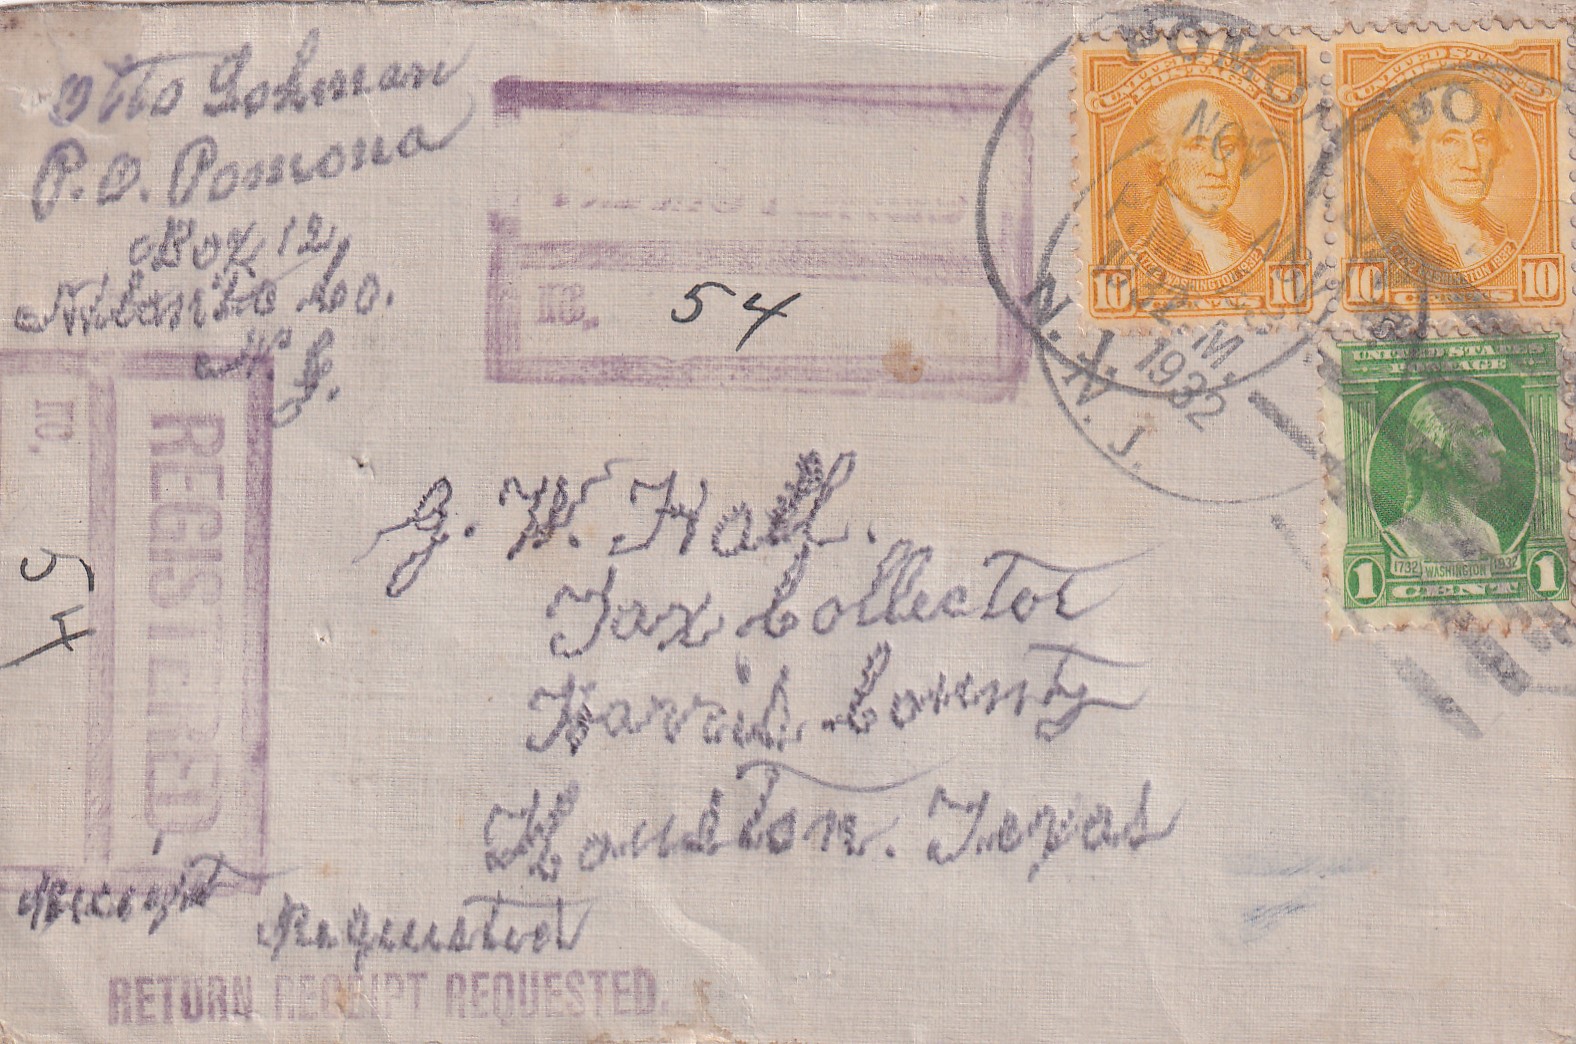 Otto Lohman
P.O. Pomona
Box 12,
Atlantic Co.
N.
J.
NO.
54
POMO
NOV
1932
N. J.
PO
N. J.
UNITED STATES
POSTAGE
1732 WASHINGTON 1932
10 CENTS 10
UNITED STATES
POSTAGE
WASHINGTON 1932
10 CENTS 10
UNITED STATES
POSTAGE
1732 WASHINGTON 1932
1 CENT 1
REGISTERED
NO.
54
G. W. Hall.
Tax Collector
Harris County
Houston. Texas
Receipt Requested
RETURN RECEIPT REQUESTED.